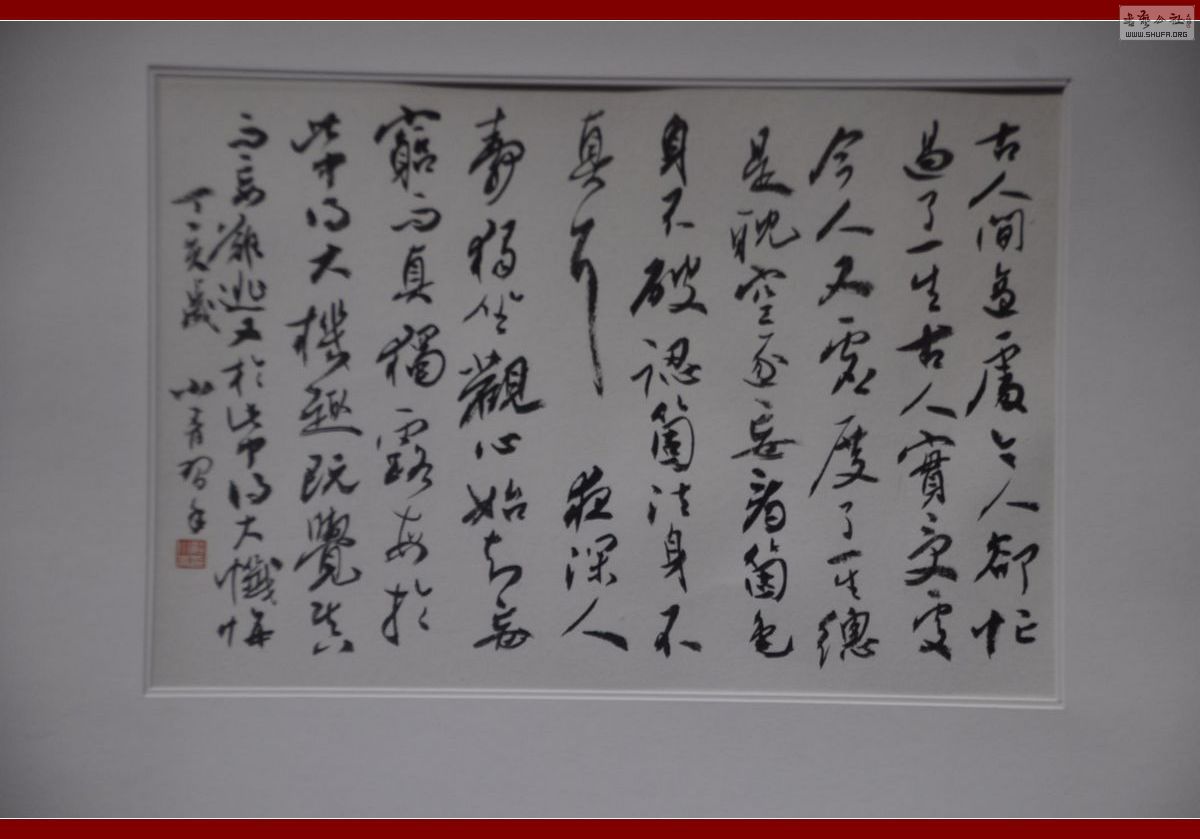 古人間適處今人卻忙
過了一生古人實受處
今人又虛度了一生總
是耽空逐妄看箇色
身不破認箇法身不
真耳 夜深人
靜獨坐觀心始知妄
窮而真獨露每於
此中得大機趣既覺真
而妄難逃又於此中得大懺悔
丁亥歲 小青習
书艺公社
WWW.SHUFA.ORG